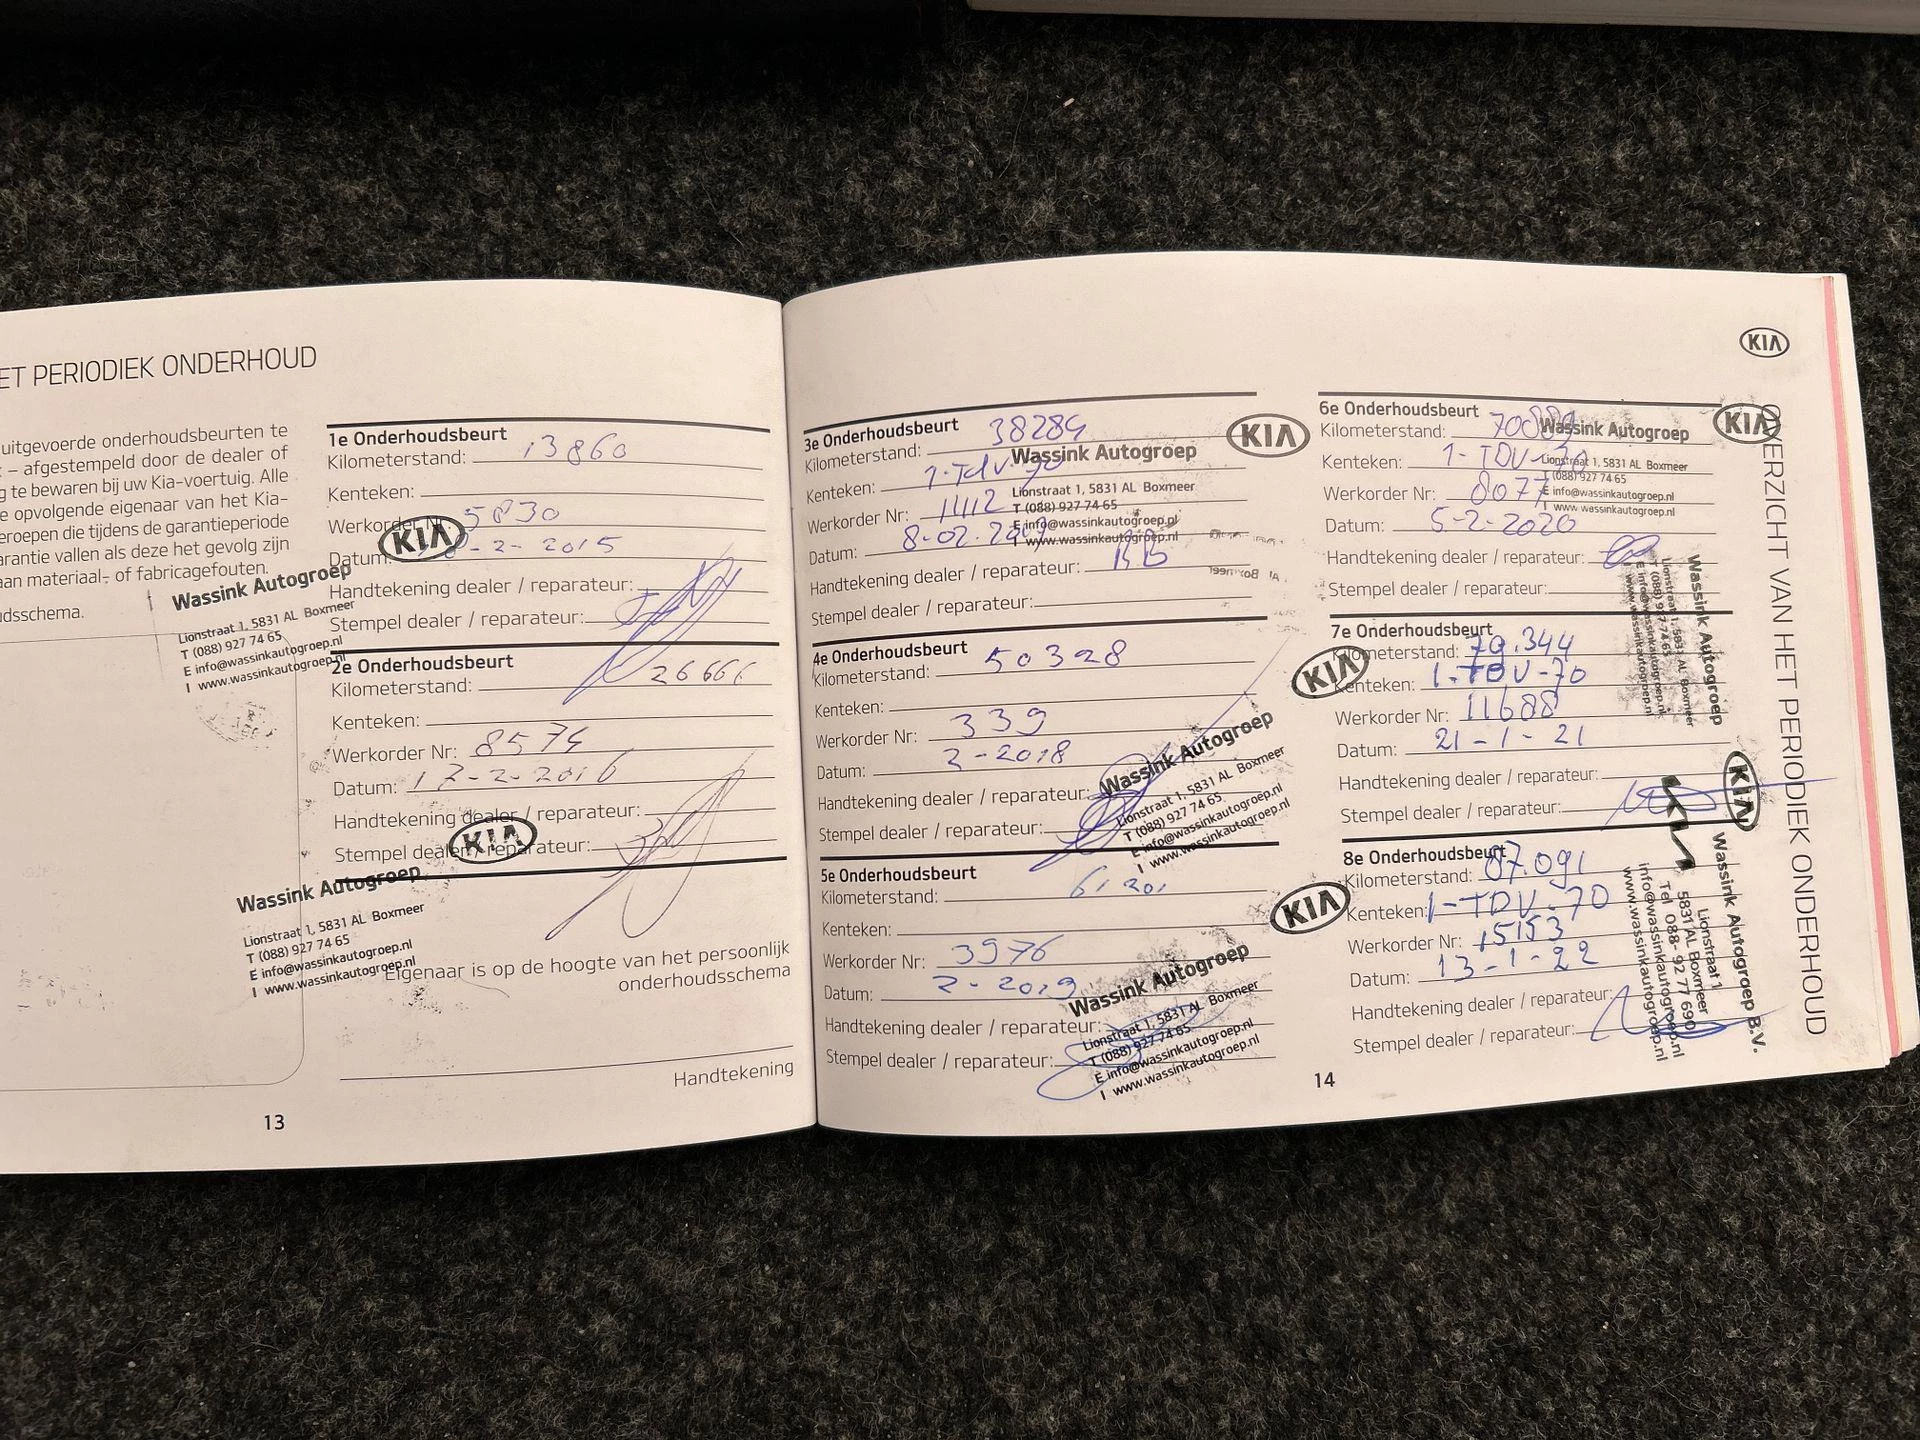 ET PERIODIEK ONDERHOUD
uitgevoerde onderhoudsbeurten te
– afgestempeld door de dealer of
g te bewaren bij uw Kia-voertuig. Alle
e opvolgende eigenaar van het Kia-
eroepen die tijdens de garantieperiode
arantie vallen als deze het gevolg zijn
aan materiaal- of fabricagefouten.
udsschema.
1e Onderhoudsbeurt
Kilometerstand: 13860
Kenteken:
Werkorder Nr: 5830
Datum: -2-2015
Handtekening dealer / reparateur:
Stempel dealer / reparateur:
KIA
Wassink Autogroep
Lionstraat 1, 5831 AL Boxmeer
T (088) 927 74 65
E info@wassinkautogroep.nl
I www.wassinkautogroep.nl
2e Onderhoudsbeurt
Kilometerstand: 26666
Kenteken:
Werkorder Nr: 8574
Datum: 17-2-2016
Handtekening dealer / reparateur:
Stempel dealer / reparateur:
KIA
Wassink Autogroep
Lionstraat 1, 5831 AL Boxmeer
T (088) 927 74 65
E info@wassinkautogroep.nl
I www.wassinkautogroep.nl
Eigenaar is op de hoogte van het persoonlijk
onderhoudsschema
Handtekening
13
KIA
OVERZICHT VAN HET PERIODIEK ONDERHOUD
3e Onderhoudsbeurt
Kilometerstand: 38284
Kenteken: 1-TDV-70
Werkorder Nr: 11112
Datum: 8-02-
Handtekening dealer / reparateur:
Stempel dealer / reparateur:
KIA
Wassink Autogroep
Lionstraat 1, 5831 AL Boxmeer
T (088) 927 74 65
E info@wassinkautogroep.nl
I www.wassinkautogroep.nl
4e Onderhoudsbeurt
Kilometerstand: 50328
Kenteken:
Werkorder Nr: 339
Datum: 2-2018
Handtekening dealer / reparateur:
Stempel dealer / reparateur:
KIA
Wassink Autogroep
Lionstraat 1, 5831 AL Boxmeer
T (088) 927 74 65
E info@wassinkautogroep.nl
I www.wassinkautogroep.nl
5e Onderhoudsbeurt
Kilometerstand: 61201
Kenteken:
Werkorder Nr: 3976
Datum: 2-2019
Handtekening dealer / reparateur:
Stempel dealer / reparateur:
KIA
Wassink Autogroep
Lionstraat 1, 5831 AL Boxmeer
T (088) 927 74 65
E info@wassinkautogroep.nl
I www.wassinkautogroep.nl
6e Onderhoudsbeurt
Kilometerstand: 70884
Kenteken: 1-TDV-70
Werkorder Nr: 8077
Datum: 5-2-2020
Handtekening dealer / reparateur:
Stempel dealer / reparateur:
KIA
Wassink Autogroep
Lionstraat 1, 5831 AL Boxmeer
T (088) 927 74 65
E info@wassinkautogroep.nl
I www.wassinkautogroep.nl
7e Onderhoudsbeurt
Kilometerstand: 79.344
Kenteken: 1-TDV-70
Werkorder Nr: 11688
Datum: 21-1-21
Handtekening dealer / reparateur:
Stempel dealer / reparateur:
KIA
Wassink Autogroep
Lionstraat 1, 5831 AL Boxmeer
T (088) 927 74 65
E info@wassinkautogroep.nl
I www.wassinkautogroep.nl
8e Onderhoudsbeurt
Kilometerstand: 87.091
Kenteken: 1-TDV-70
Werkorder Nr: 15153
Datum: 13-1-22
Handtekening dealer / reparateur:
Stempel dealer / reparateur:
KIA
Wassink Autogroep B.V.
Lionstraat 1
5831 AL Boxmeer
Tel. 088- 92 77 690
info@wassinkautogroep.nl
www.wassinkautogroep.nl
14